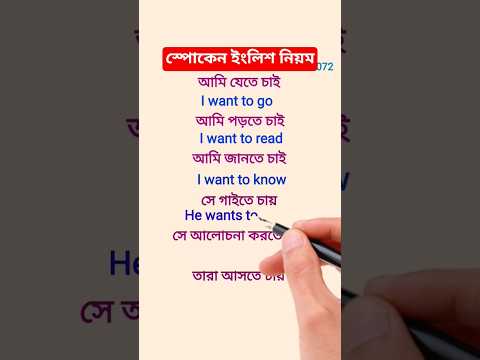 স্পোকেন ইংলিশ নিয়ম
072
আমি যেতে চাই
I want to go
আমি পড়তে চাই
I want to read
আমি জানতে চাই
I want to know
সে গাইতে চায়
He wants to
সে আলোচনা করতে
তারা আসতে চায়
He
সে